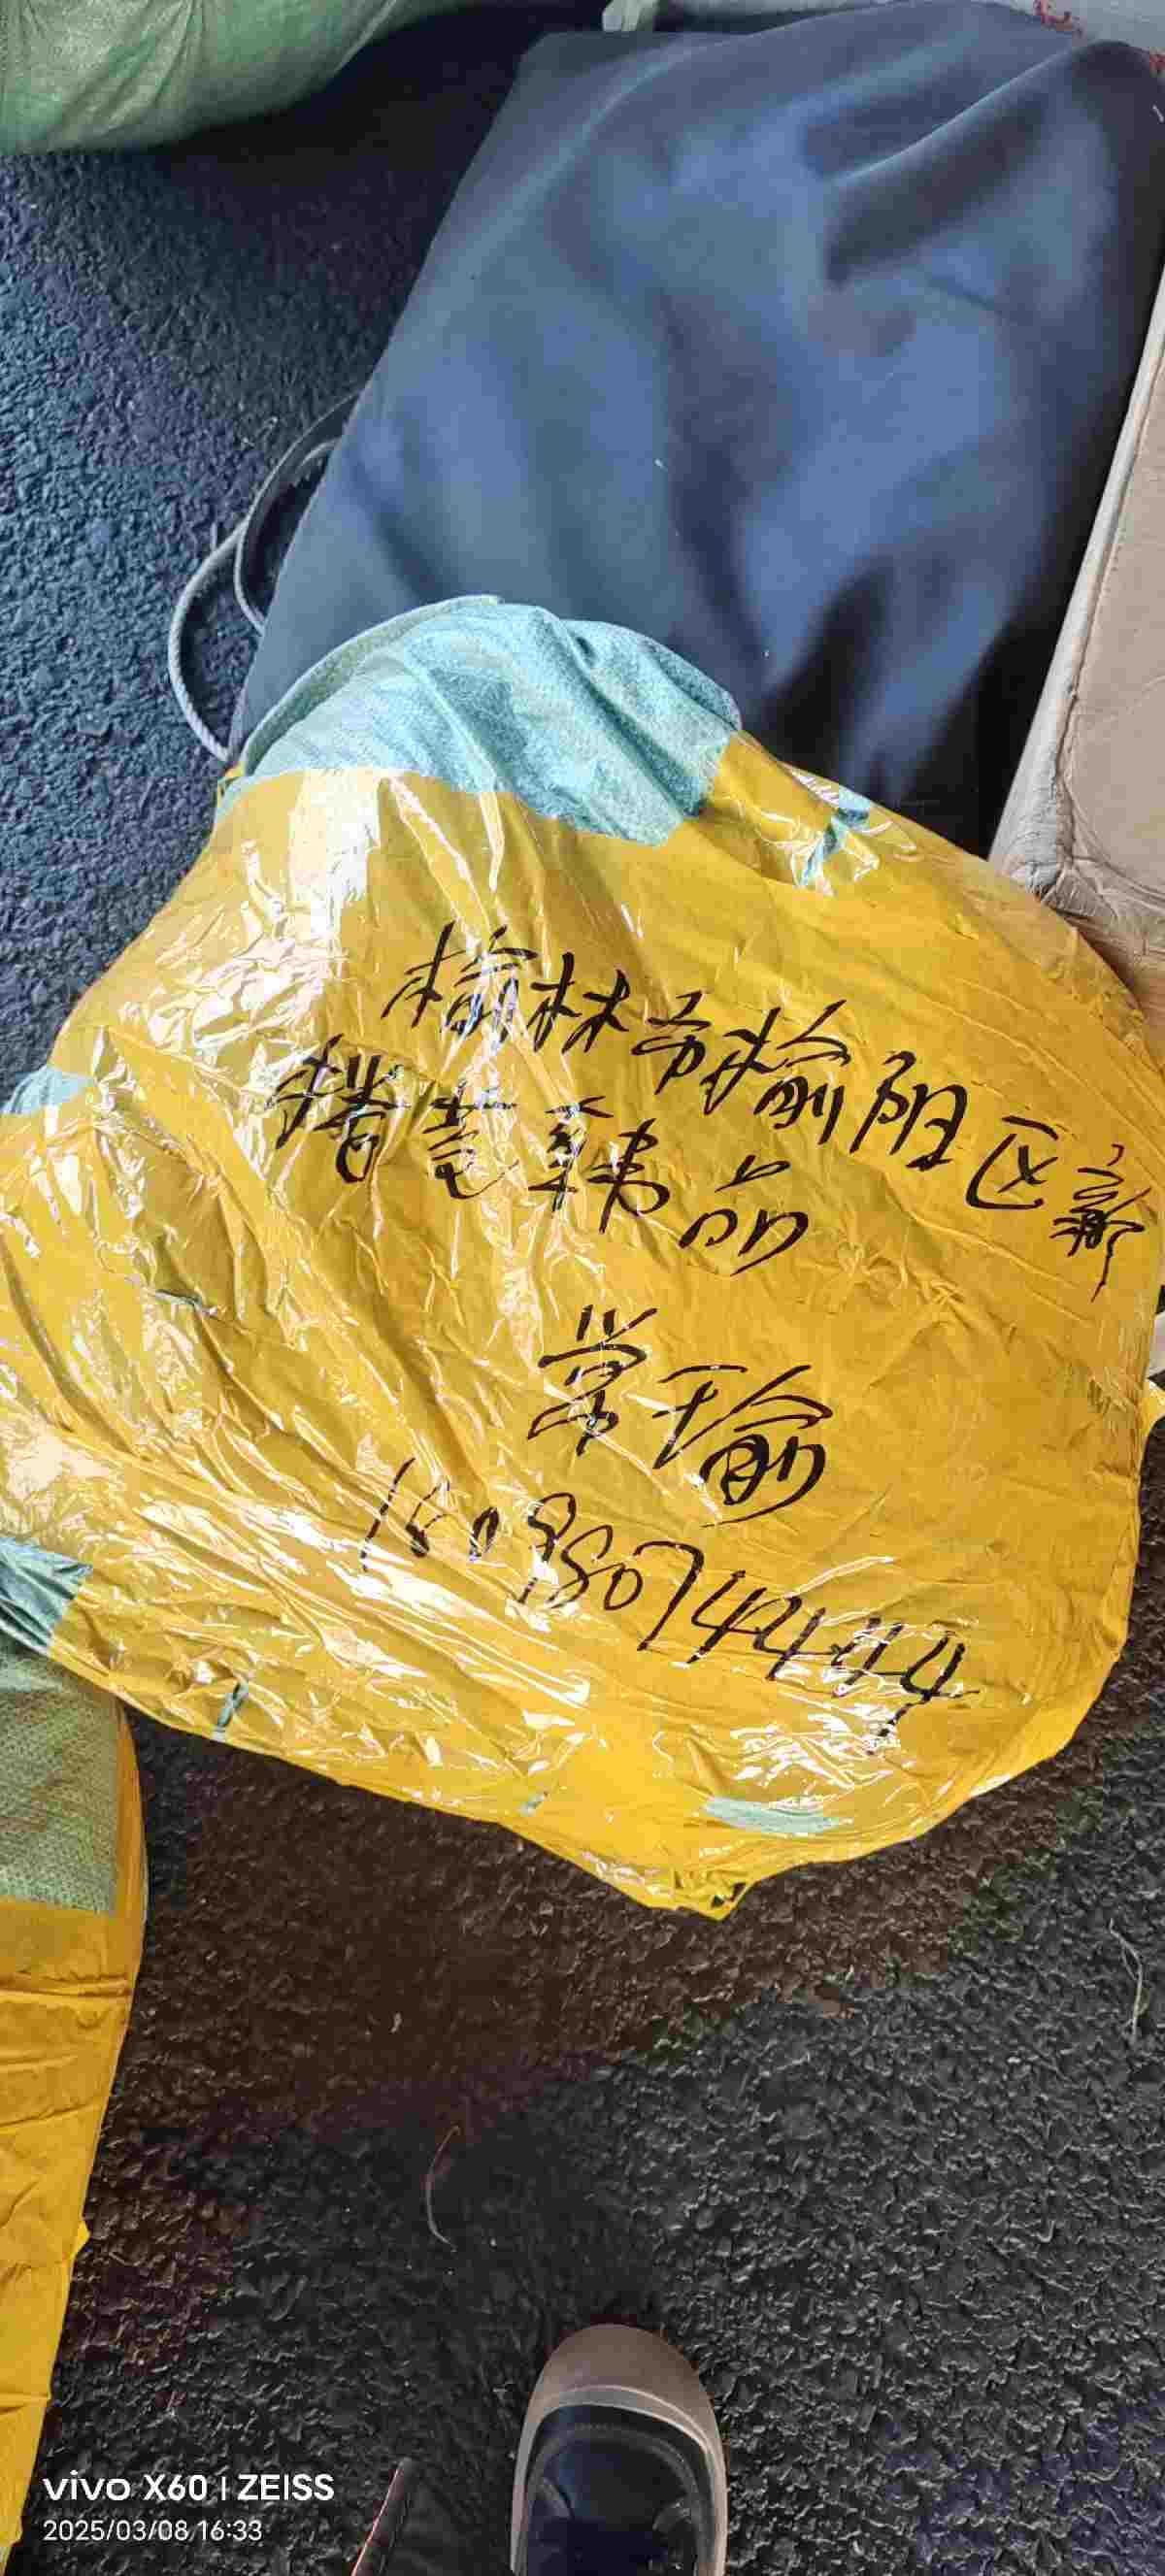 榆林市榆阳区新
楼苑韩品
常瑜
vivo X60 | ZEISS
2025/03/08 16:33